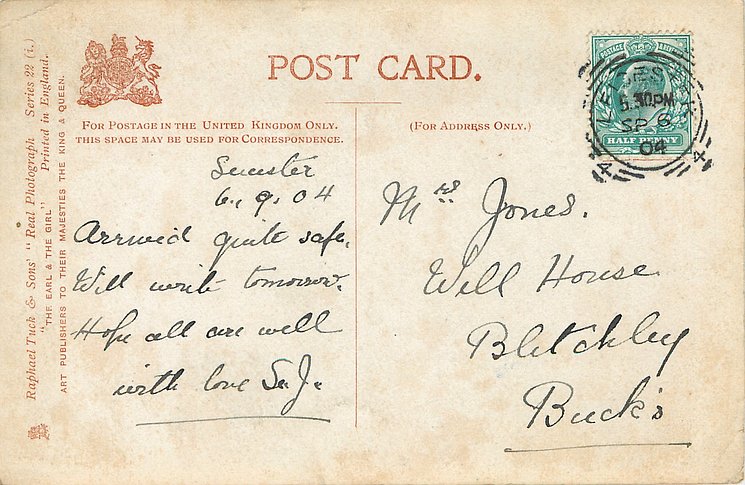 POST CARD.
FOR POSTAGE IN THE UNITED KINGDOM ONLY.
THIS SPACE MAY BE USED FOR CORRESPONDENCE.
(FOR ADDRESS ONLY.)
Raphael Tuck & Sons' "Real Photograph Series 22 (i.)
"THE EARL & THE GIRL" Printed in England.
ART PUBLISHERS TO THEIR MAJESTIES THE KING & QUEEN.
Leicester
6. 9. 04
Arrived quite safe.
Will write tomorrow.
Hope all are well
with love S.J.
Mrs Jones.
Well House
Bletchley
Buck's
POSTAGE
HALF PENNY
5.30PM
SP 6
04
4 4